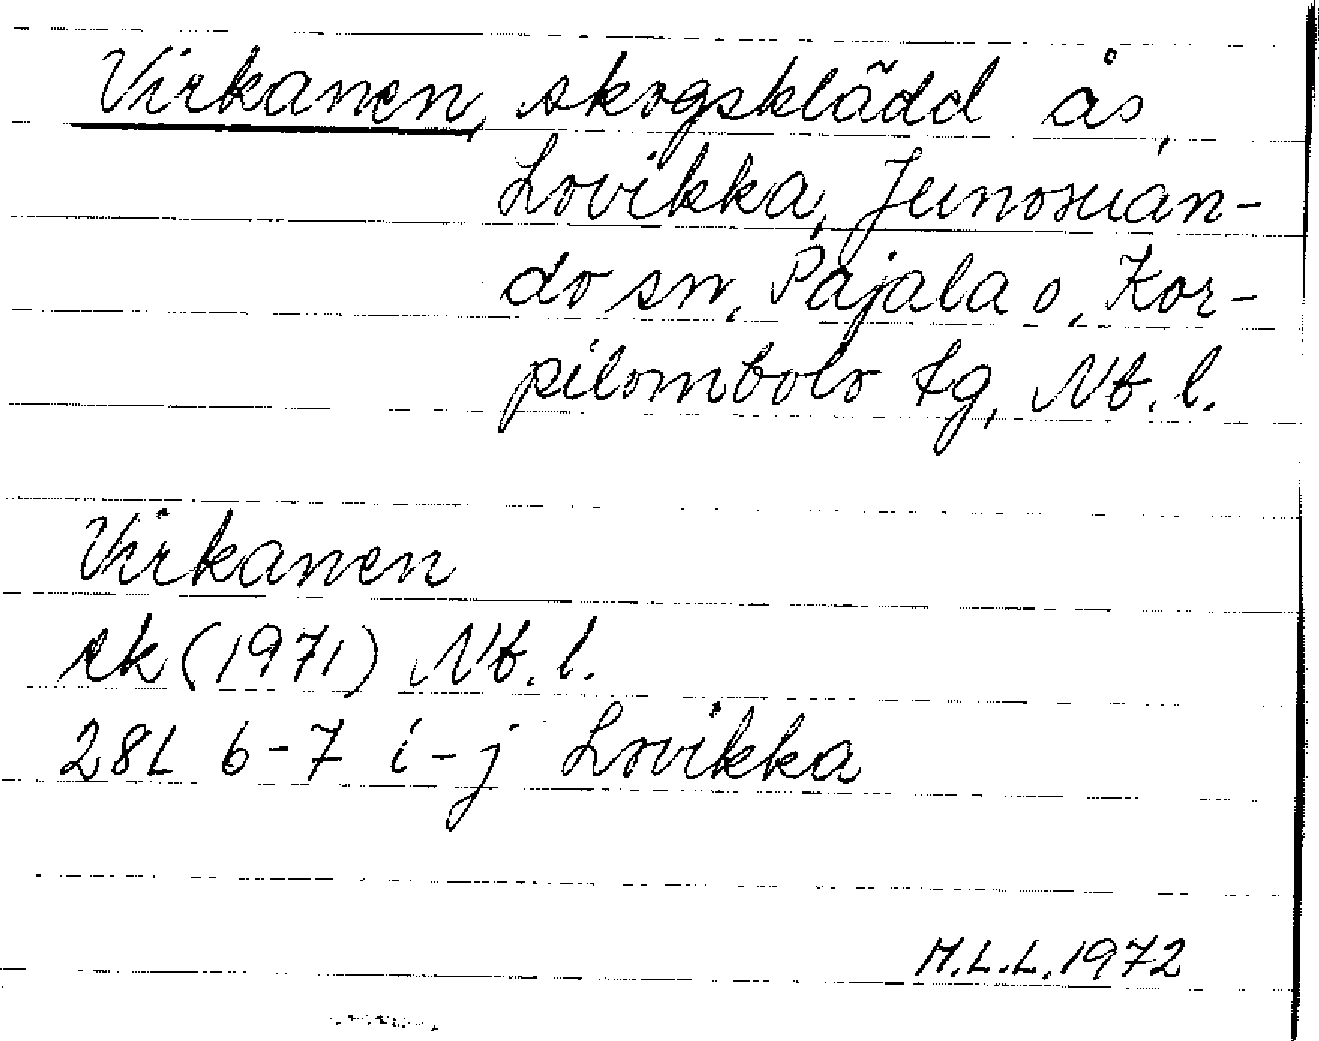 Virkanen, skogsklädd ås,
Lovikka, Junosuan-
do sn, Pajala o. Kor-
pilombolo tg, Nb. l.
Virkanen
ek (1971) Nb. l.
28L 6-7 i-j Lovikka
M.L.L. 1972